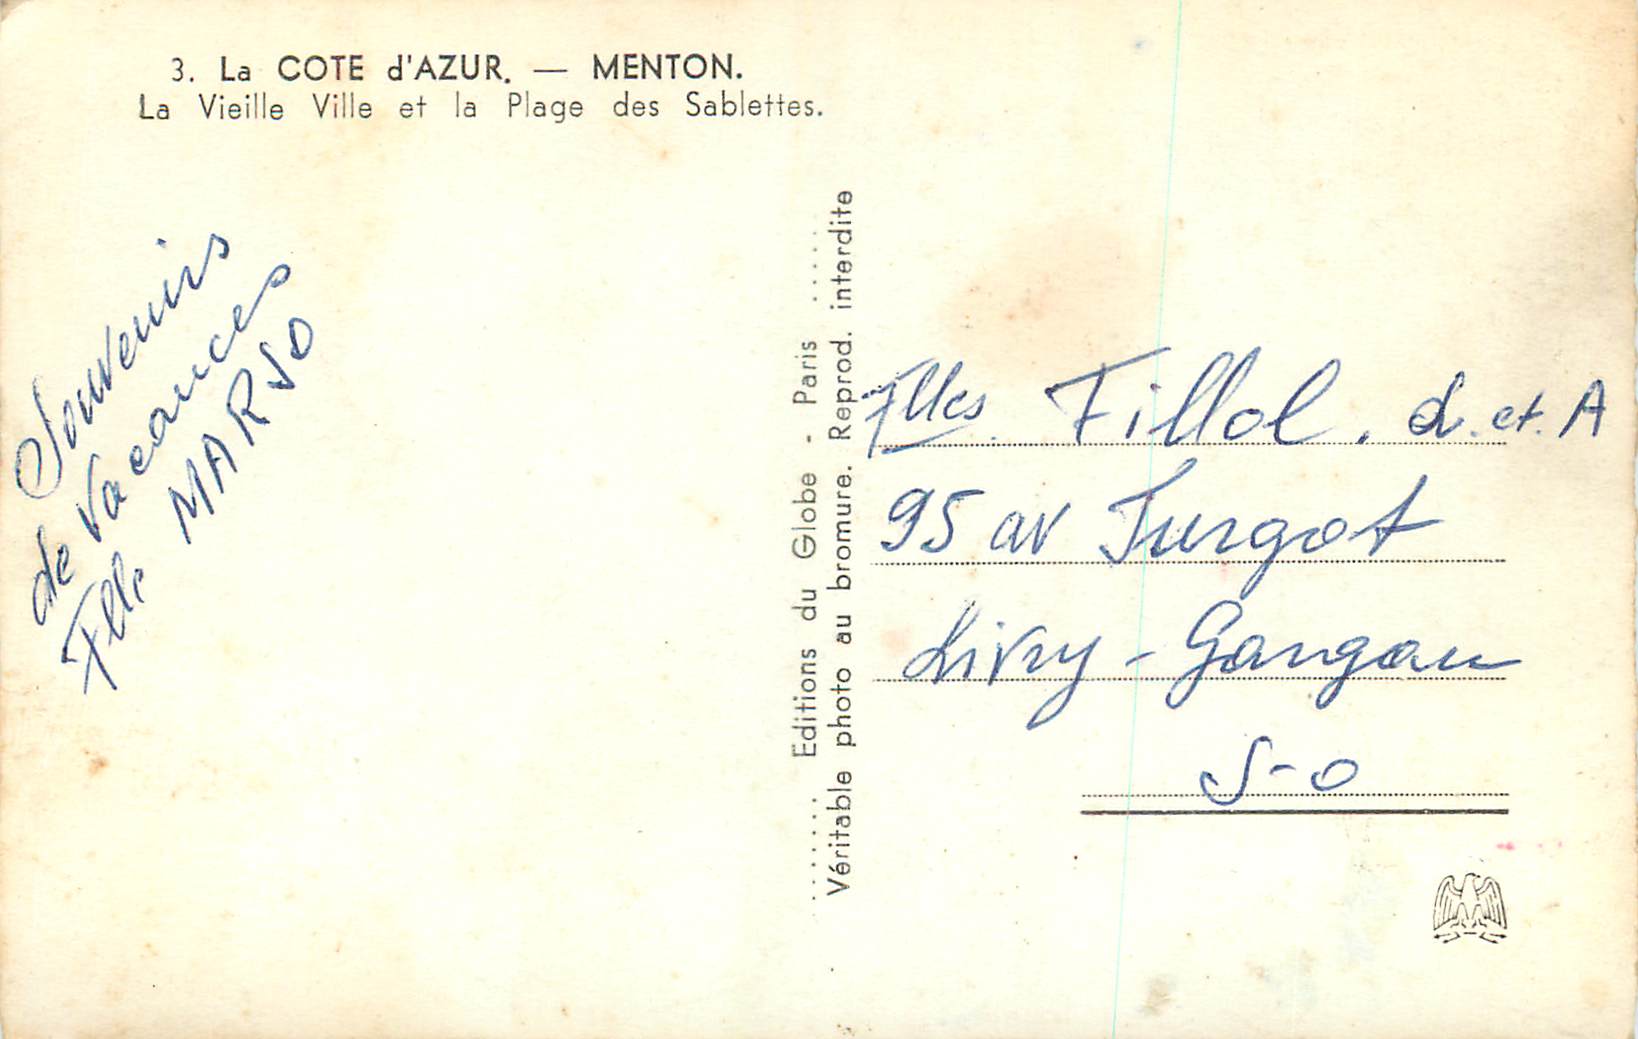 3. La COTE d'AZUR. — MENTON.
La Vieille Ville et la Plage des Sablettes.
Souvenirs
de Vacances
Flle MARSO
Editions du Globe - Paris
Véritable photo au bromure. Reprod. interdite
Flles Fillol. d. et. A
95 av Turgot
Livry - Gargan
S-O